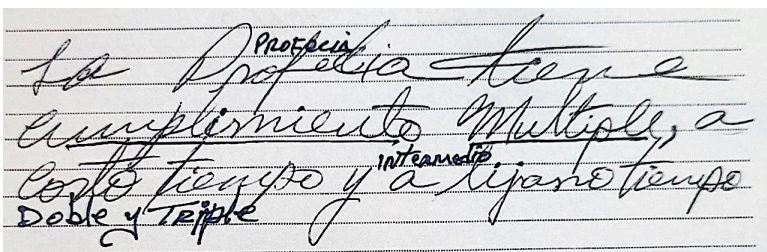 PROFECIA
La Profecia tiene
cumplimiento Multiple, a
intermedio
corto tiempo y a lijano tiempo
Doble y TRiple